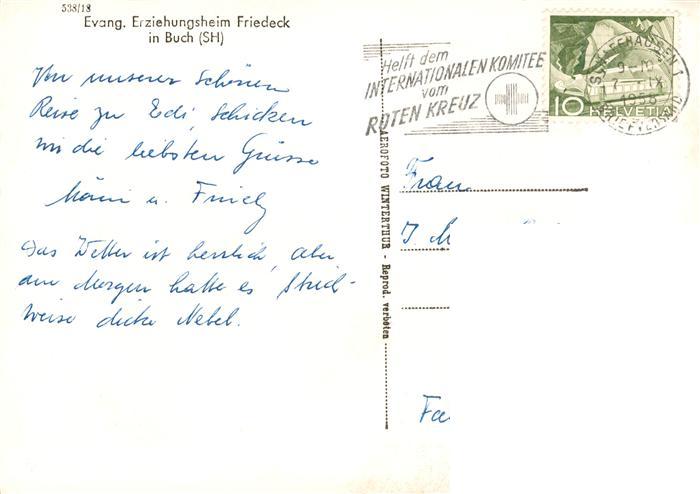 538/18
Evang. Erziehungsheim Friedeck
in Buch (SH)
Von unserer schönen
Reise zu Edi schicken
wir die liebsten Grüsse
u.
Das Wetter ist herrlich, aber
am Morgen hatte es strich-
weise dicke Nebel.
AEROFOTO WINTERTHUR - Reprod. verboten
Helft dem
INTERNATIONALEN KOMITEE
vom
ROTEN KREUZ
SCHAFFHAUSEN 1
BRIEFVERSAND
10 HELVETIA
Frau
Fa